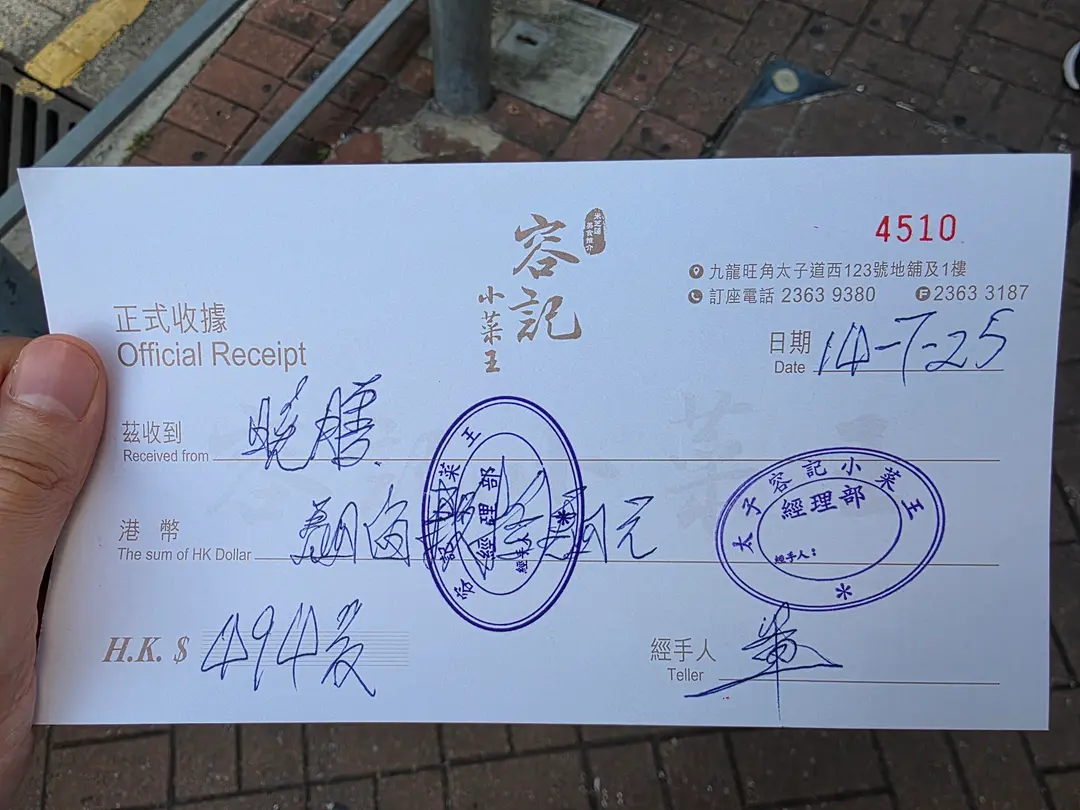 容記
小菜王
米芝蓮
美食推介
4510
九龍旺角太子道西123號地舖及1樓
訂座電話 2363 9380 F 2363 3187
正式收據
Official Receipt
日期
Date 14-7-25
茲收到
Received from 晚膳
港幣
The sum of HK Dollar 元
太子容記小菜王
經理部
經手人:
H.K. $ 494
經手人
Teller